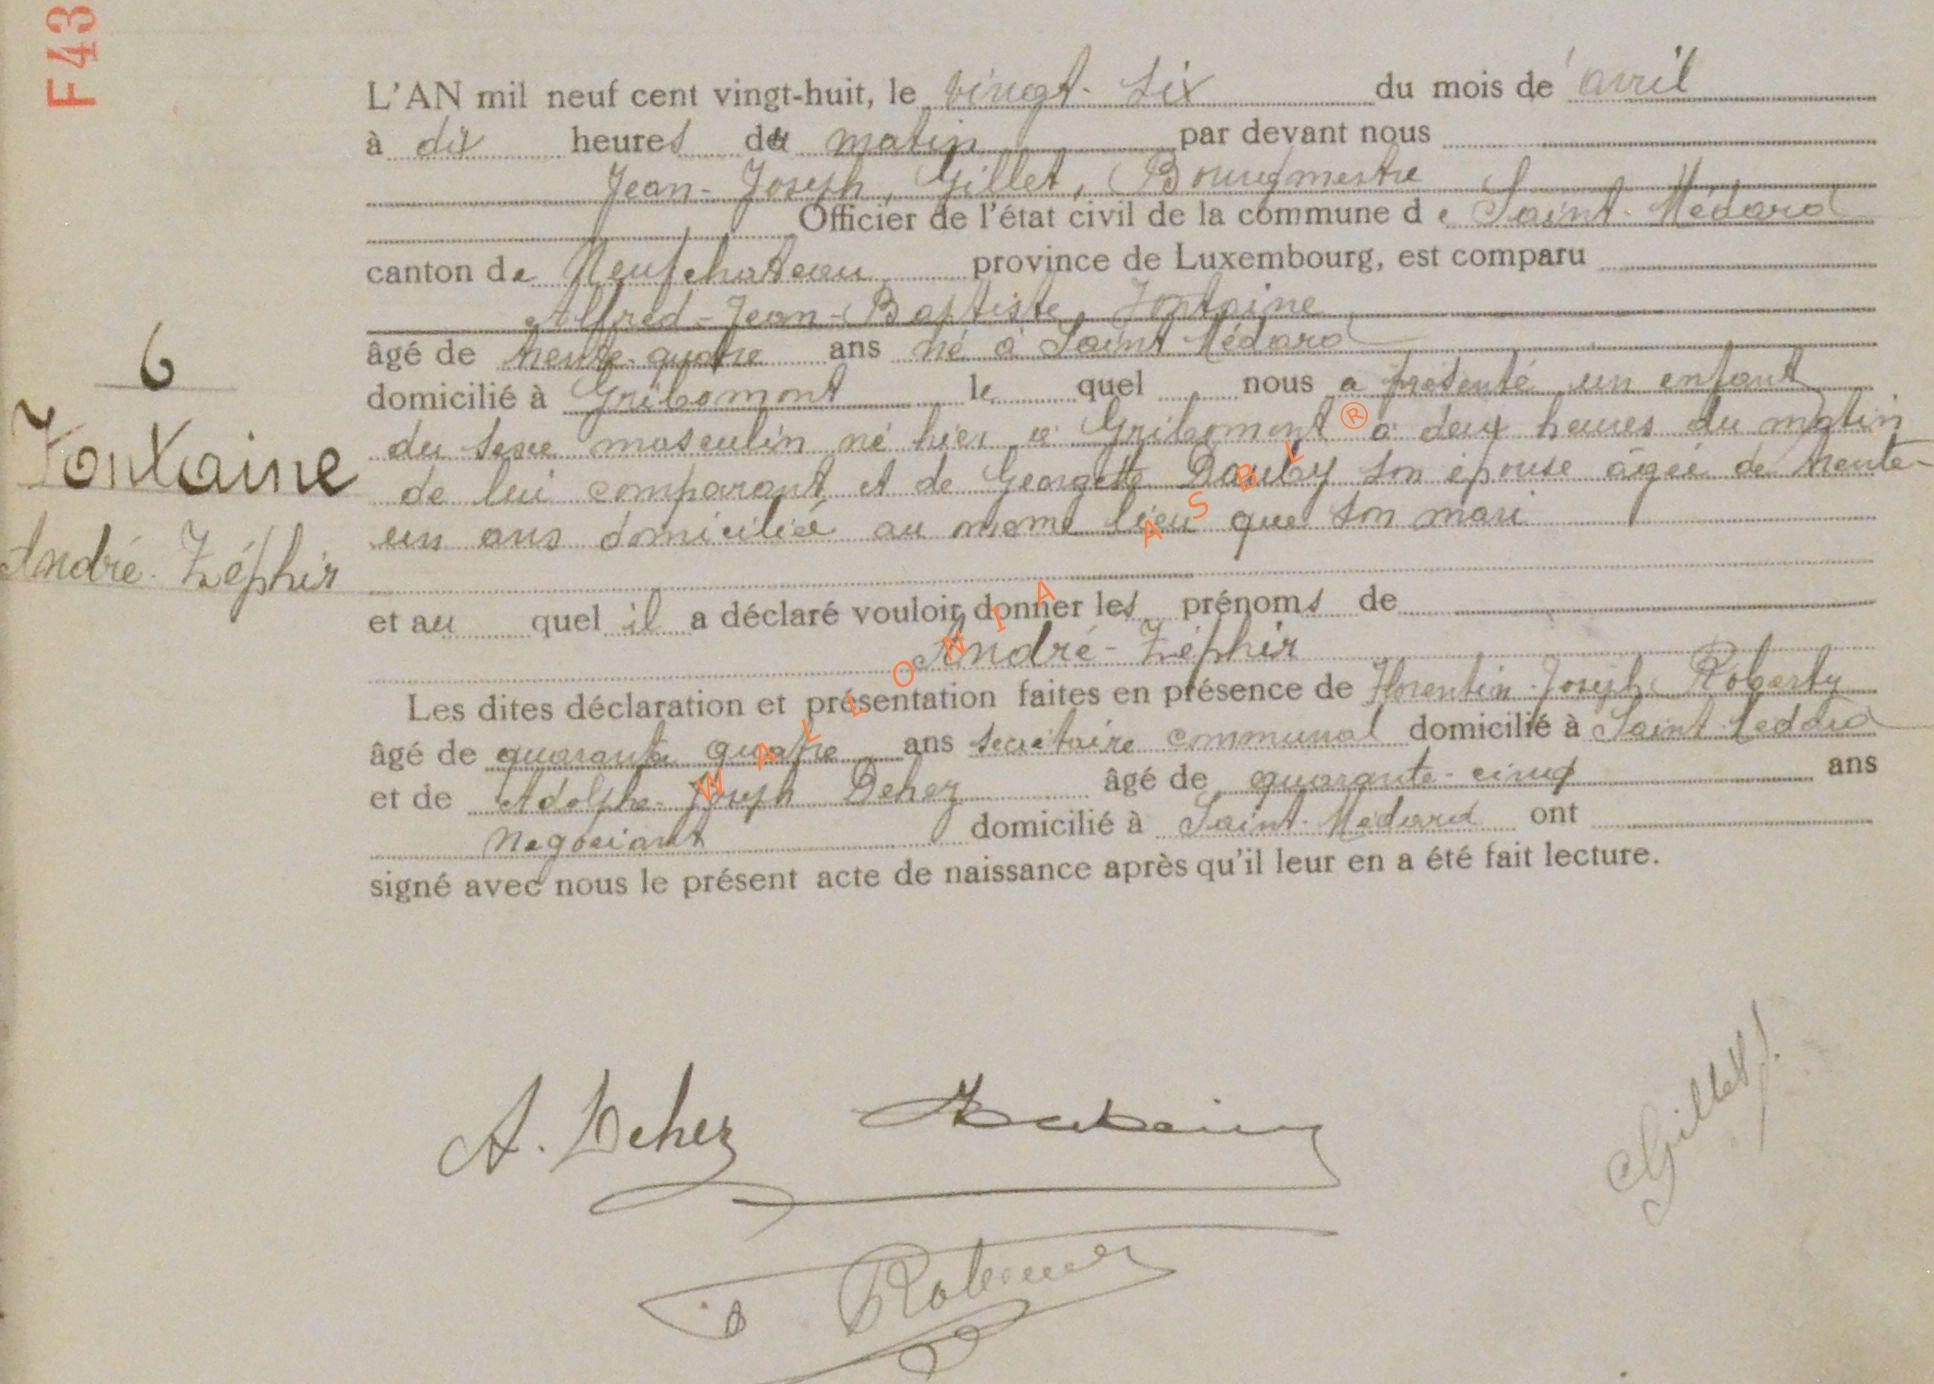 F43
L'AN mil neuf cent vingt-huit, le vingt-six du mois de avril
à dix heures du matin par devant nous
Jean-Joseph, Gillet, Bourgmestre
Officier de l'état civil de la commune de Saint-Médard
canton de Neufchateau province de Luxembourg, est comparu
Alfred-Jean-Baptiste Fontaine
âgé de trente-quatre ans né à Saint Médard
6
domicilié à Gribomont le quel nous a présenté un enfant
du sexe masculin né hier à Gribomont à deux heures du matin
Fontaine
de lui comparant et de Georgette Dauby son épouse âgée de trente-
un ans domiciliée au même lieu que son mari
André-Zéphir
et au quel il a déclaré vouloir donner les prénoms de
André-Zéphir
Les dites déclaration et présentation faites en présence de Florentin-Joseph Roberty
âgé de quarante quatre ans secrétaire communal domicilié à Saint Médard
et de Adolphe-Joseph Dehez âgé de quarante-cinq ans
négociant domicilié à Saint-Médard ont
signé avec nous le présent acte de naissance après qu'il leur en a été fait lecture.
WALLONIA ASBL ®
A. Dehez
Gillet J.